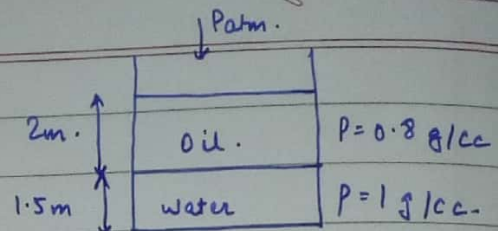 Patm.
2m.
Oil.
P=0.8 g/cc
1.5m
water
P=1 g/cc.